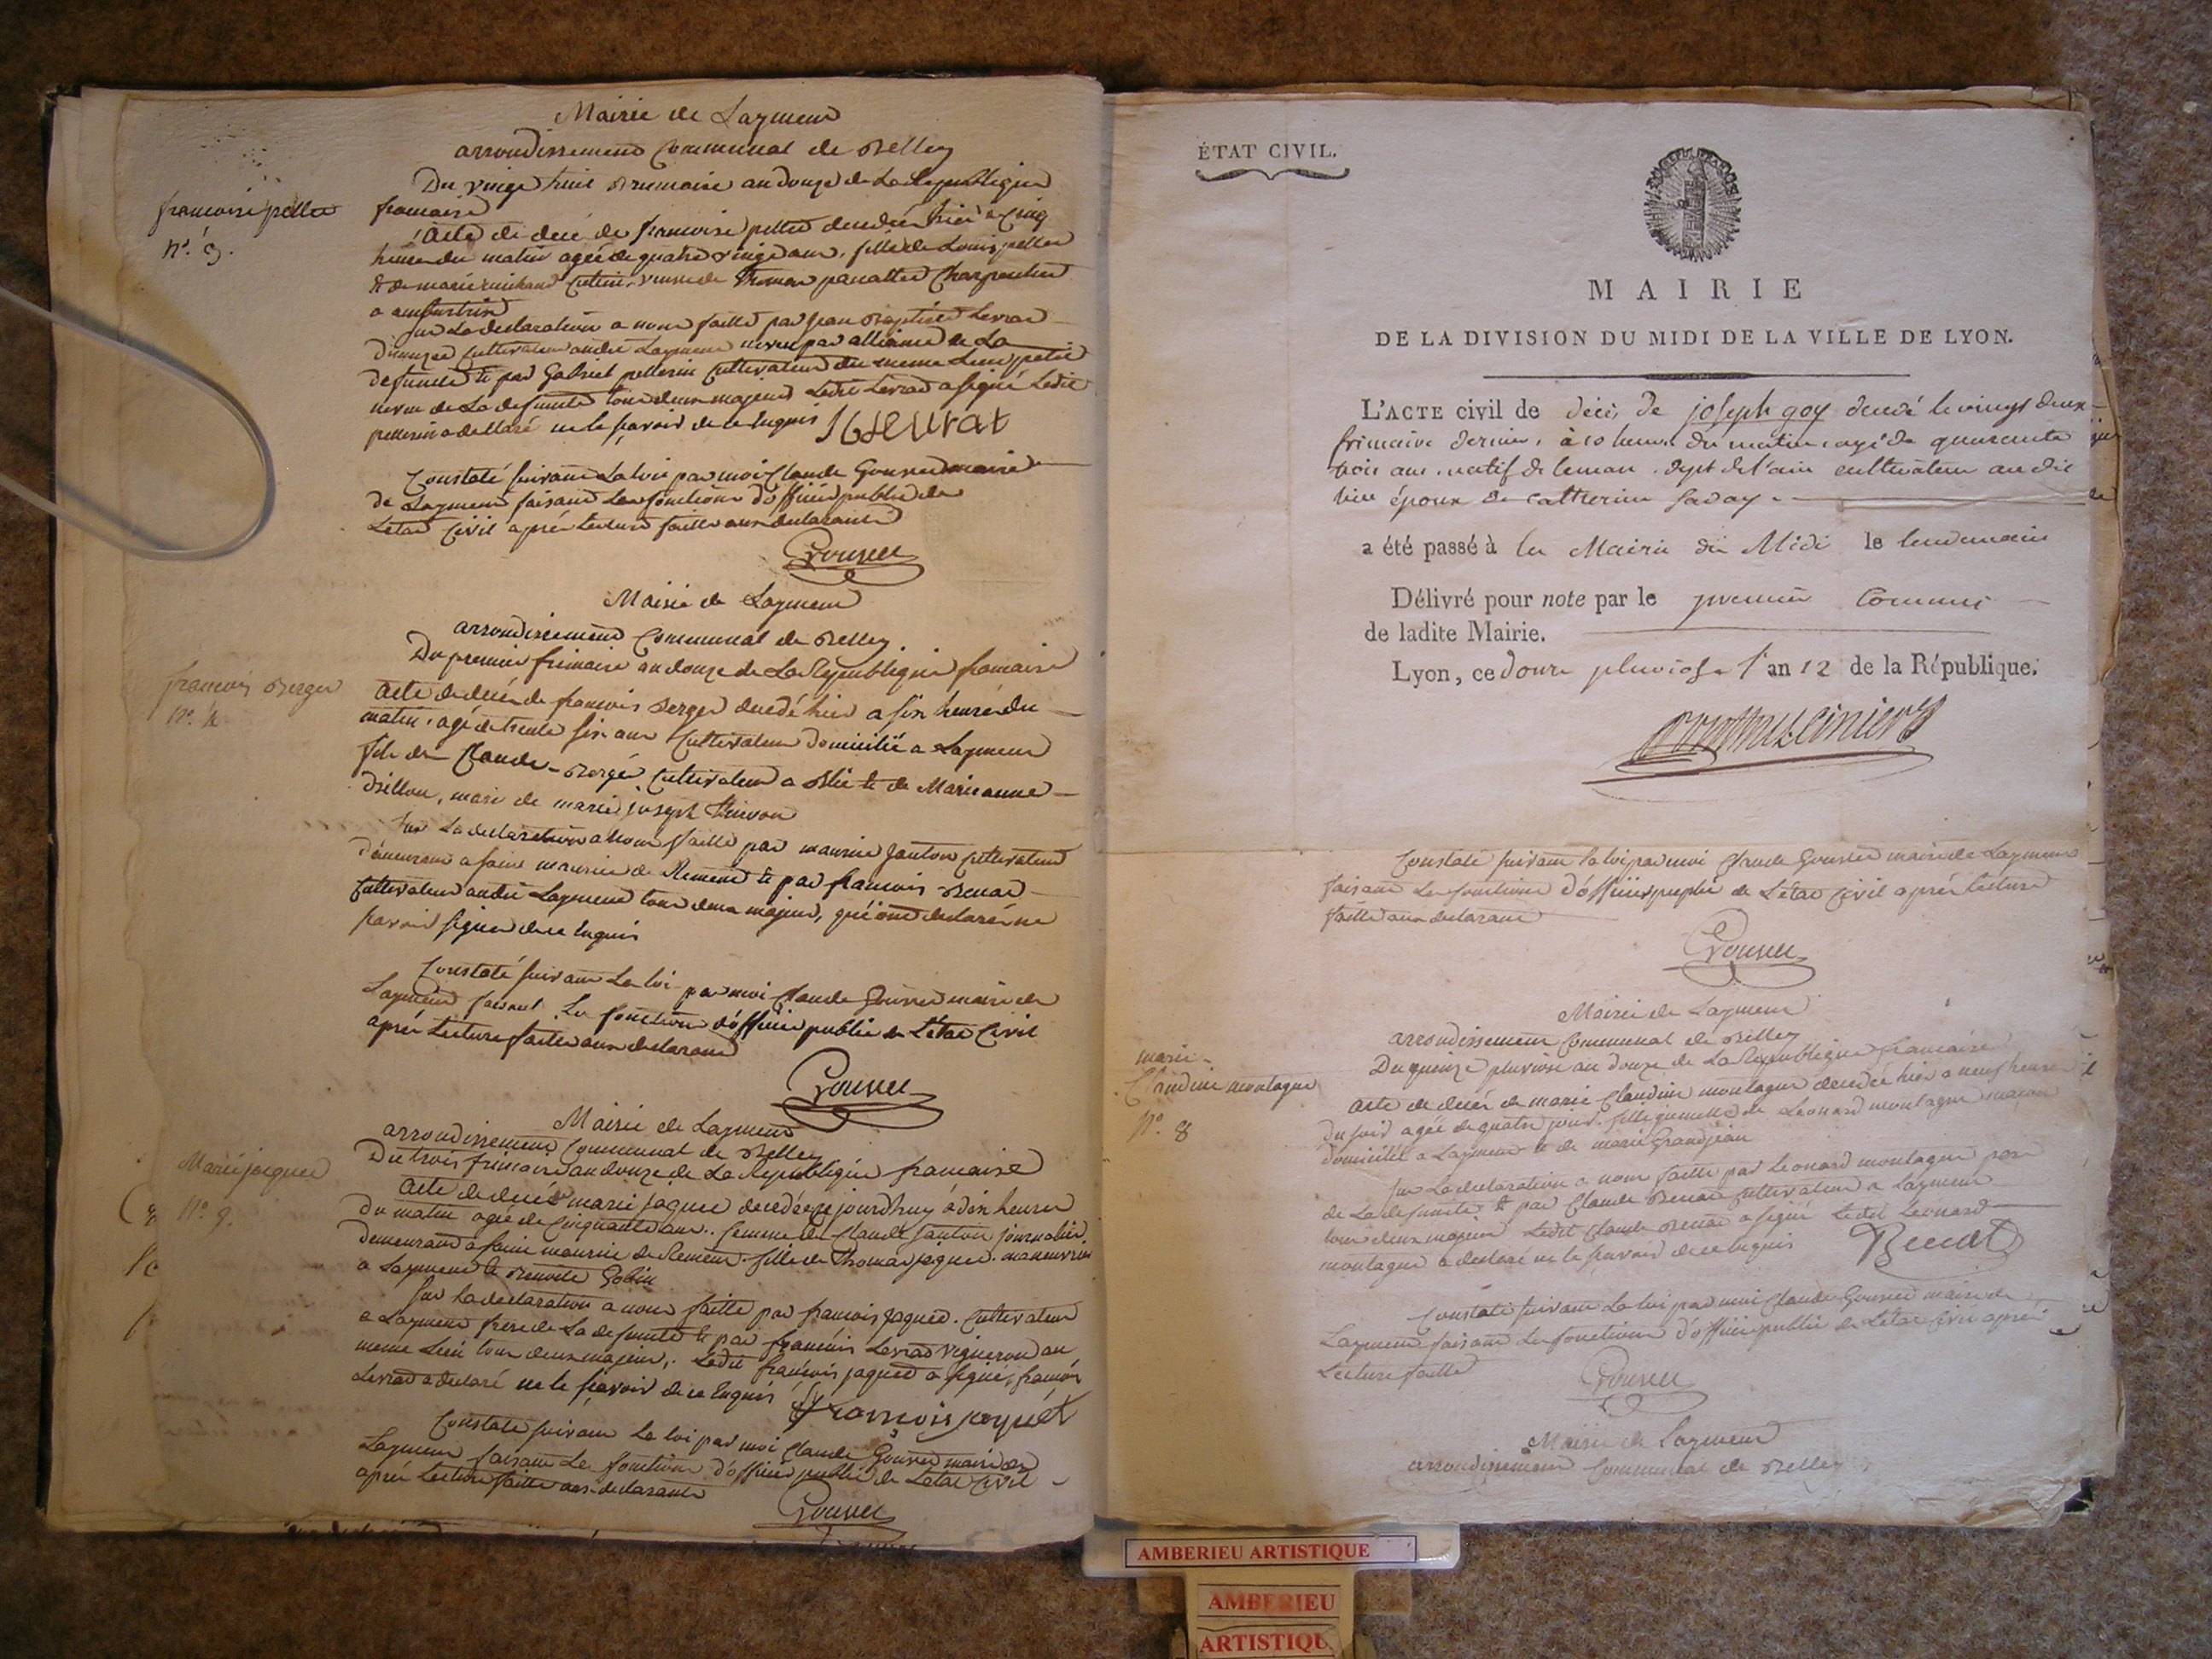 Mairie de Laymens
arrondissement Communal de Belley
Du vingt huit Brumaire an douze de La Republique
francaise
francoise pellet
n°. 3.
Acte de decé de francoise pellet decedée hier a Cinq
heures du matin agée de quatre vingt ans, fille de Louis pellet
& de marie veuve de Charpentier
Sur La declaration a nous faitte par jean Baptiste Levrat
Cultivateur audit Laymens neveu par alliance de La
defunte & par Gabriel pellerin Cultivateur du meme Lieu petit
neveu de La defunte tous deux majeurs Ledit Levrat a signé Ledit
pellerin a declaré ne le sçavoir de ce Enquis
Constaté suivant La loi par moi Claude Gouvet maire
de Laymens faisant Les fonctions d'officier public de
Letat Civil aprés Lecture faitte aux declarants
Gouvet
Mairie de Laymens
arrondissement Communal de Belley
Du premier frimaire an douze de La Republique francaise
francois Berger
n°. 4
Acte de decés de francois Berger decedé hier a six heures du
matin, agé de trente six ans Cultivateur domicilié a Laymens
fils de Claude Bergé Cultivateur a & de Marieanne
mari de marie joseph
Sur La declaration a nous faitte par maurice Janton Cultivateur
demeurant a saint maurice de Remens & par francois Benat
Cultivateur audit Laymens tous deux majeurs, qui ont declaré ne
sçavoir signer de ce Enquis
Constaté suivant La loi par moi Claude Gouvet maire de
Laymens faisant Les fonctions d'officier public de L'état Civil
aprés Lecture faitte aux declarants
Gouvet
Mairie de Laymens
arrondissement Communal de Belley
Du trois frimaire an douze de La Republique francaise
Marie jacquet
n°.
Acte de decés marie jaquet decedée ce jourd'huy a dix heures
du matin agée de Cinquante ans, femme de Claude Janton journalier
demeurant a saint maurice de Remens fille de Thomas jaquet
a Laymens & Benoite Gobin
Sur La declaration a nous faitte par francois Jaquet Cultivateur
a Laymens frere de La defunte & par francois Levrat vigneron au
meme Lieu tous deux majeurs, Ledit francois jaquet a signé, francois
Levrat a declaré ne le sçavoir de ce Enquis
francois jaquet
Constaté suivant La loi par moi Claude Gouvet maire de
Laymens faisant Les fonctions d'officier public de Letat Civil
aprés Lecture faitte aux declarants
Gouvet
ÉTAT CIVIL.
MAIRIE
DE LA DIVISION DU MIDI DE LA VILLE DE LYON.
L'ACTE civil de décès de joseph goy decedé le vingt deux
frimaire dernier, à 10 heures du matin, agé de quarante
trois ans, natif de leman, dept de l'ain cultivateur au dit
lieu époux de Catherine
a été passé à la Mairie du Midi le lendemain
Délivré pour note par le premier Commis
de ladite Mairie.
Lyon, ce douze pluviose l'an 12 de la République.
Constaté suivant la loi par moi Claude Gouvet maire de Laymens
faisant Les fonctions d'officier public de L'état Civil aprés Lecture
faitte aux declarans
Gouvet
Mairie de Laymens
arrondissement Communal de Belley
Du quinze pluviose an douze de La Republique francaise
marie
Claudine montagne
n°. 8
Acte de decés de marie Claudine montagne decedée hier a neuf heures
du soir agée de quatre jours fille jumelle de Leonard montagne macon
domicilié a Laymens & de marie Grandjean
Sur La declaration a nous faitte par Leonard montagne pere
de La defunte & par Claude Benat Cultivateur a Laymens
tous deux majeurs Ledit Claude Benat a signé Ledit Leonard
montagne a declaré ne le sçavoir de ce Enquis
Benat
Constaté suivant La loi par moi Claude Gouvet maire de
Laymens faisant Les fonctions d'officier public de Letat Civil aprés
Lecture faitte
Gouvet
Mairie de Laymens
arrondissement Communal de Belley
AMBERIEU ARTISTIQUE
AMBERIEU
ARTISTIQU